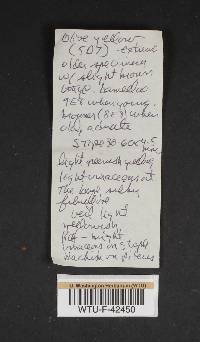 Olive yellow
(5D7) - extreme
older specimens
w/ slight brown
Lamellae
9E8 when young,
browner (8E8) when
old, adnate
STIPE 30-60 x 4.5
mm
light greenish yellow,
light
The base, silky
fibrillose
veil light
yellowish,
KOH - bright
on stipe
blackish on pileus
U. Washington Herbarium (WTU)
WTU-F-42450